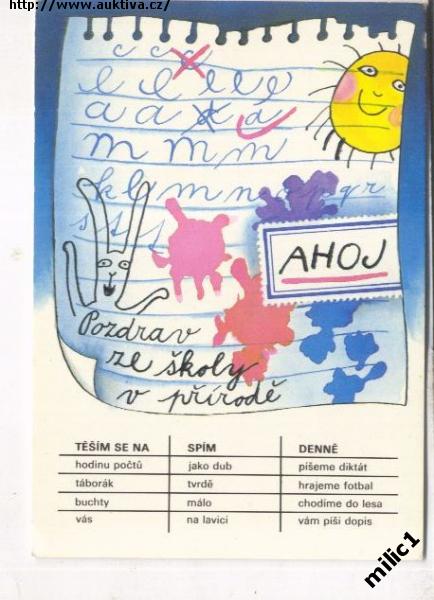 http://www.auktiva.cz/
c c c
l l l l l
a a a a
m m m
k l m n o p q r
s s s s
AHOJ
Pozdrav
ze školy
v přírodě
TĚŠÍM SE NA SPÍM DENNĚ
hodinu počtů jako dub píšeme diktát
táborák tvrdě hrajeme fotbal
buchty málo chodíme do lesa
vás na lavici vám píši dopis
milic1